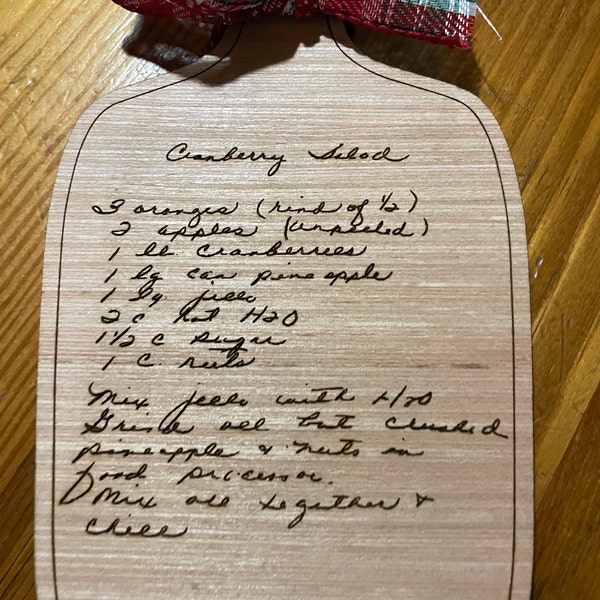 Cranberry Salad
3 oranges (rind of 1/2)
2 apples (unpeeled)
1 lb cranberries
1 lg can pineapple
1 lg jello
2 c hot H2O
1 1/2 c sugar
1 c. nuts
Mix jello with H2O
Grind all but crushed
pineapple & nuts in
food processor.
Mix all together &
chill